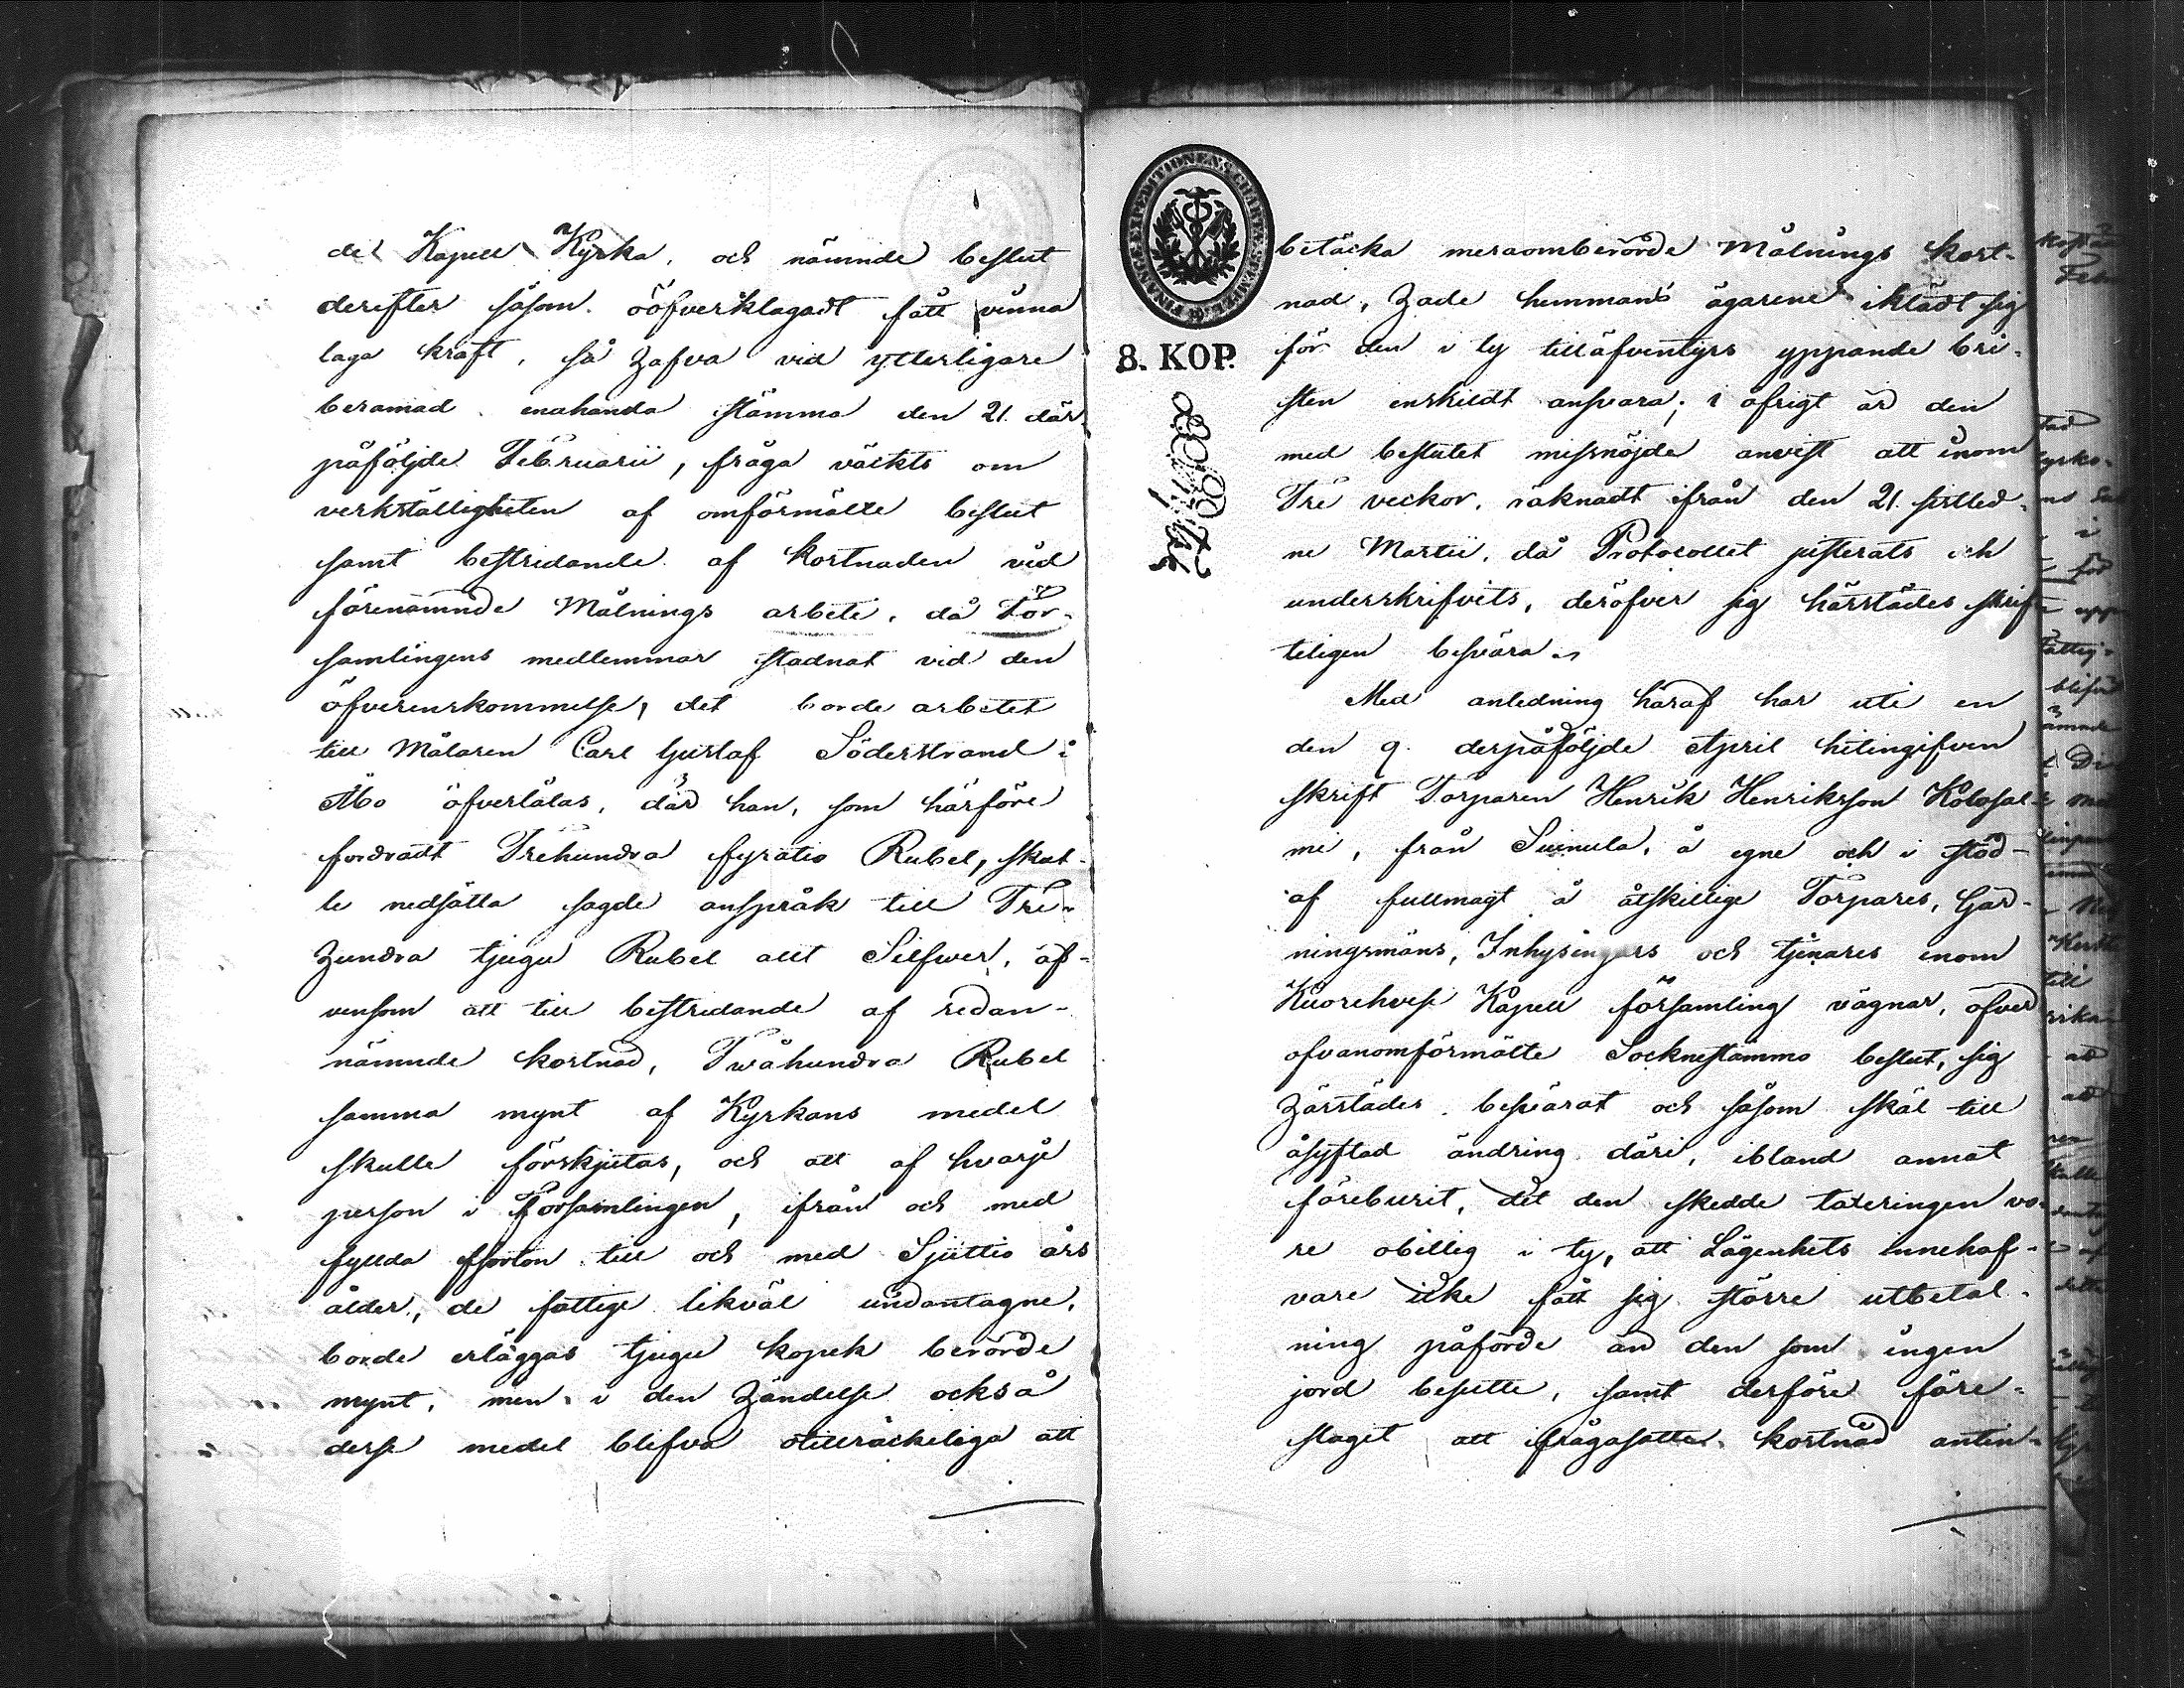 de Kapell Kyrka, och nämnde beslut
derefter såsom oöfverklagadt fått vinna
laga kraft, så hafva vid ytterligare
beramad enahanda stämma den 21. där-
påföljde Februarii, fråga väckts om
verkställigheten af omförmälte beslut
samt bestridande af kostnaden vid
förenämnde Målnings arbete, då För-
samlingens medlemmar stadnat vid den
öfverenskommelse, det borde arbetet
till Målaren Carl Gustaf Söderstrand i
Åbo öfverlåtas, där han, som härföre
fordradt Trehundra fyratio Rubel, skul-
le nedsätta sagde anspråk till Tre-
hundra tjugu Rubel allt Silfwer, äf-
vensom att till bestridande af redan-
nämnde kostnad, Twåhundra Rubel
samma mynt af Kyrkans medel
skulle förskjutas, och att af hvarje
person i Församlingen, ifrån och med
fyllda fjorton till och med Sjuttio års
ålder, de fattige likväl undantagne,
borde erläggas tjugu kopek berörde
mynt, men i den händelse också
desse medel blifva otillräckeliga att
FINANCE EXPEDITIONENS CHARTÆ SIGILLATÆ
8. KOP.
betäcka meraomberörde Målnings kost-
nad, hade hemmans ägarene iklädt sig
för den i ty tilläfventyrs yppande bri-
sten enskildt ansvara; i öfrigt är den
med beslutet missnöjde anvist att inom
Tre veckor, räknadt ifrån den 21. sistled-
ne Martii, då Protocollet justerats och
underskrifvits, deröfver sig härstädes skrif-
teligen besvära.
Med anledning häraf har uti en
den 9. derpåföljde April hitingifven
skrift Torparen Henrik Henriksson Kolosal-
mi, från Suinula, å egne och i stöd
af fullmagt å åtskillige Torpares, Gär-
ningsmäns, Inhysingars och tjenares inom
Kuorehvesi Kapell församling vägnar, öfver
ofvanomförmälte Sockne stämmo beslut, sig
härstädes besvärat och såsom skäl till
åsyftad ändring däri, ibland annat
föreburit, det den skedde taxeringen vo-
re obillig i ty, att Lägenhets innehaf-
vare icke fått sig större utbetal-
ning påförde än den som ingen
jord besutte, samt derföre före-
slagit att ifrågasatte kostnad antin-